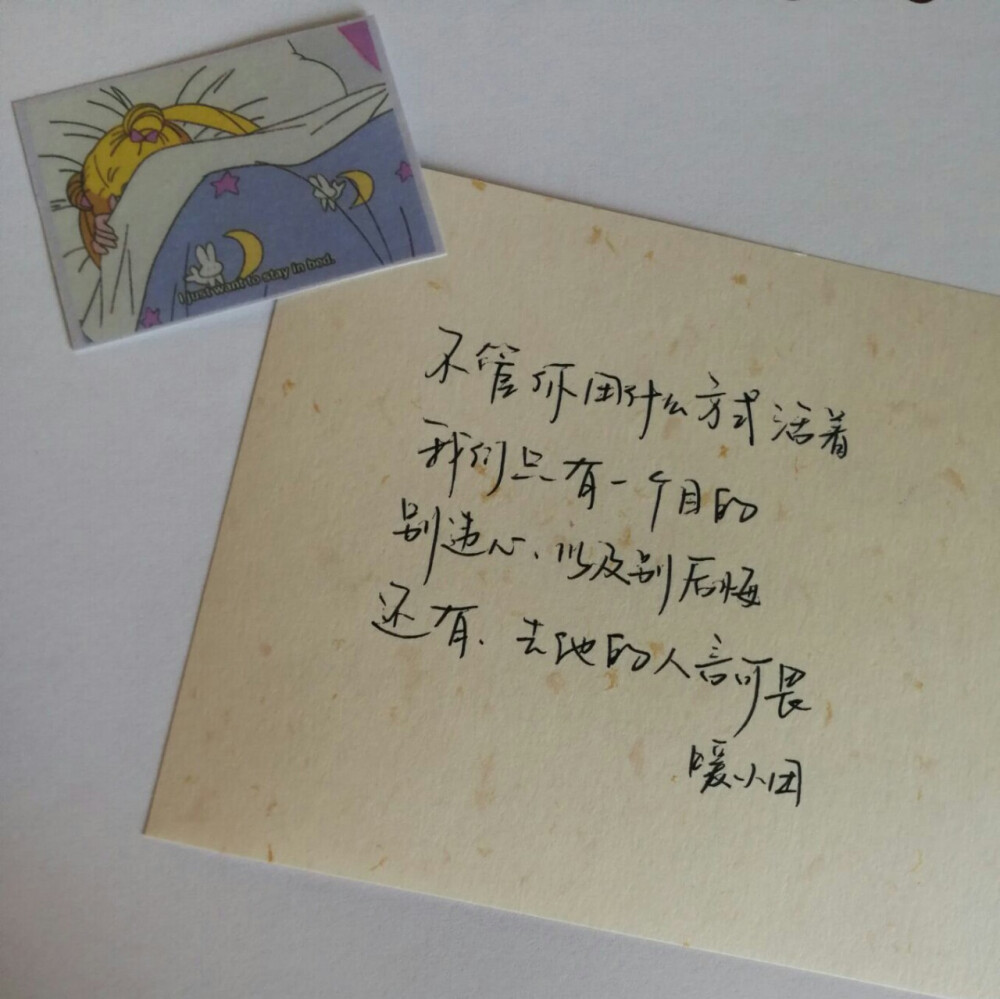 I just want to stay in bed.
不管你用什么方式活着
我们只有一个目的
别违心、以及别后悔
还有、去他的人言可畏
暖小团